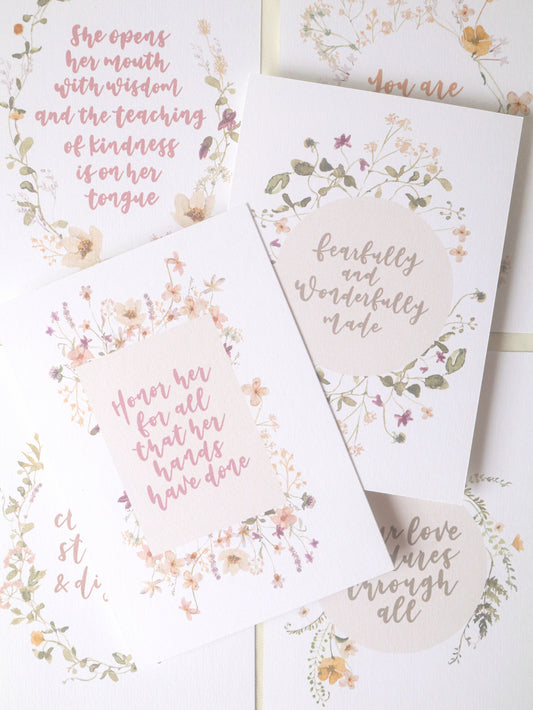 She opens
her mouth
with wisdom
and the teaching
of kindness
is on her
tongue
You are
fearfully
and
Wonderfully
made
Honor her
for all
that her
hands
have done
&
love
through
all